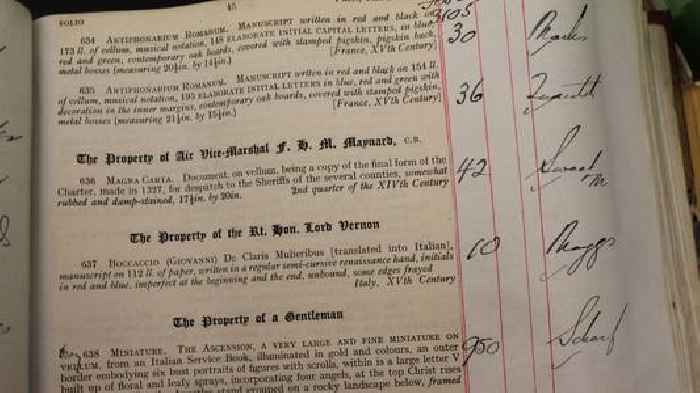 45
FOLIO
634 ANTIPHONARIUM ROMANUM. MANUSCRIPT written in red and black on
173 ll. of vellum, musical notation, 148 ELABORATE INITIAL CAPITAL LETTERS, in blue,
red and green, contemporary oak boards, covered with stamped pigskin, pigskin back,
metal bosses (measuring 20½in. by 14½in.) [France, XVth Century] 30
635 ANTIPHONARIUM ROMANUM. MANUSCRIPT written in red and black on 164 ll.
of vellum, musical notation, 195 ELABORATE INITIAL LETTERS in blue, red and green with
decoration in the inner margins, contemporary oak boards, covered with stamped pigskin,
metal bosses [measuring 21½in. by 15½in.) [France, XVth Century] 36
The Property of Air Vice-Marshal F. H. M. Maynard, C.B.
636 MAGNA CARTA. Document, on vellum, being a copy of the final form of the
Charter, made in 1327, for despatch to the Sheriffs of the several counties, somewhat
rubbed and damp-stained, 17½in. by 20in. 2nd quarter of the XIVth Century 42
The Property of the Rt. Hon. Lord Vernon
637 BOCCACCIO (GIOVANNI) De Claris Mulieribus [translated into Italian],
manuscript on 112 ll. of paper, written in a regular semi-cursive renaissance hand, initials
in red and blue, imperfect at the beginning and the end, unbound, some edges frayed
Italy, XVth Century 10 Maggs
The Property of a Gentleman
638 MINIATURE. THE ASCENSION, A VERY LARGE AND FINE MINIATURE ON
VELLUM, from an Italian Service Book, illuminated in gold and colours, an outer
border embodying six bust portraits of figures with scrolls, within is a large letter V
built up of floral and leafy sprays, incorporating four angels, at the top Christ rises
stand grouped on a rocky landscape below, framed